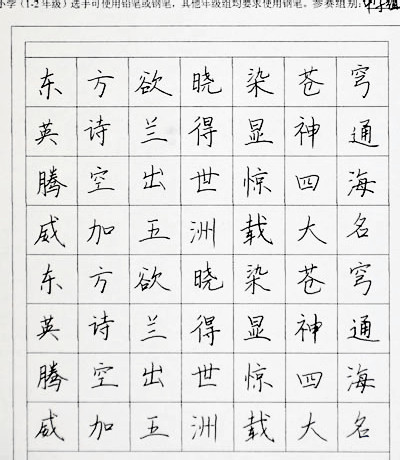 小学（1-2年级）选手可使用铅笔或钢笔，其他年级组均要求使用钢笔。参赛组别：中学组
东方欲晓染苍穹
英诗兰得显神通
腾空出世惊四海
威加五洲载大名
东方欲晓染苍穹
英诗兰得显神通
腾空出世惊四海
威加五洲载大名